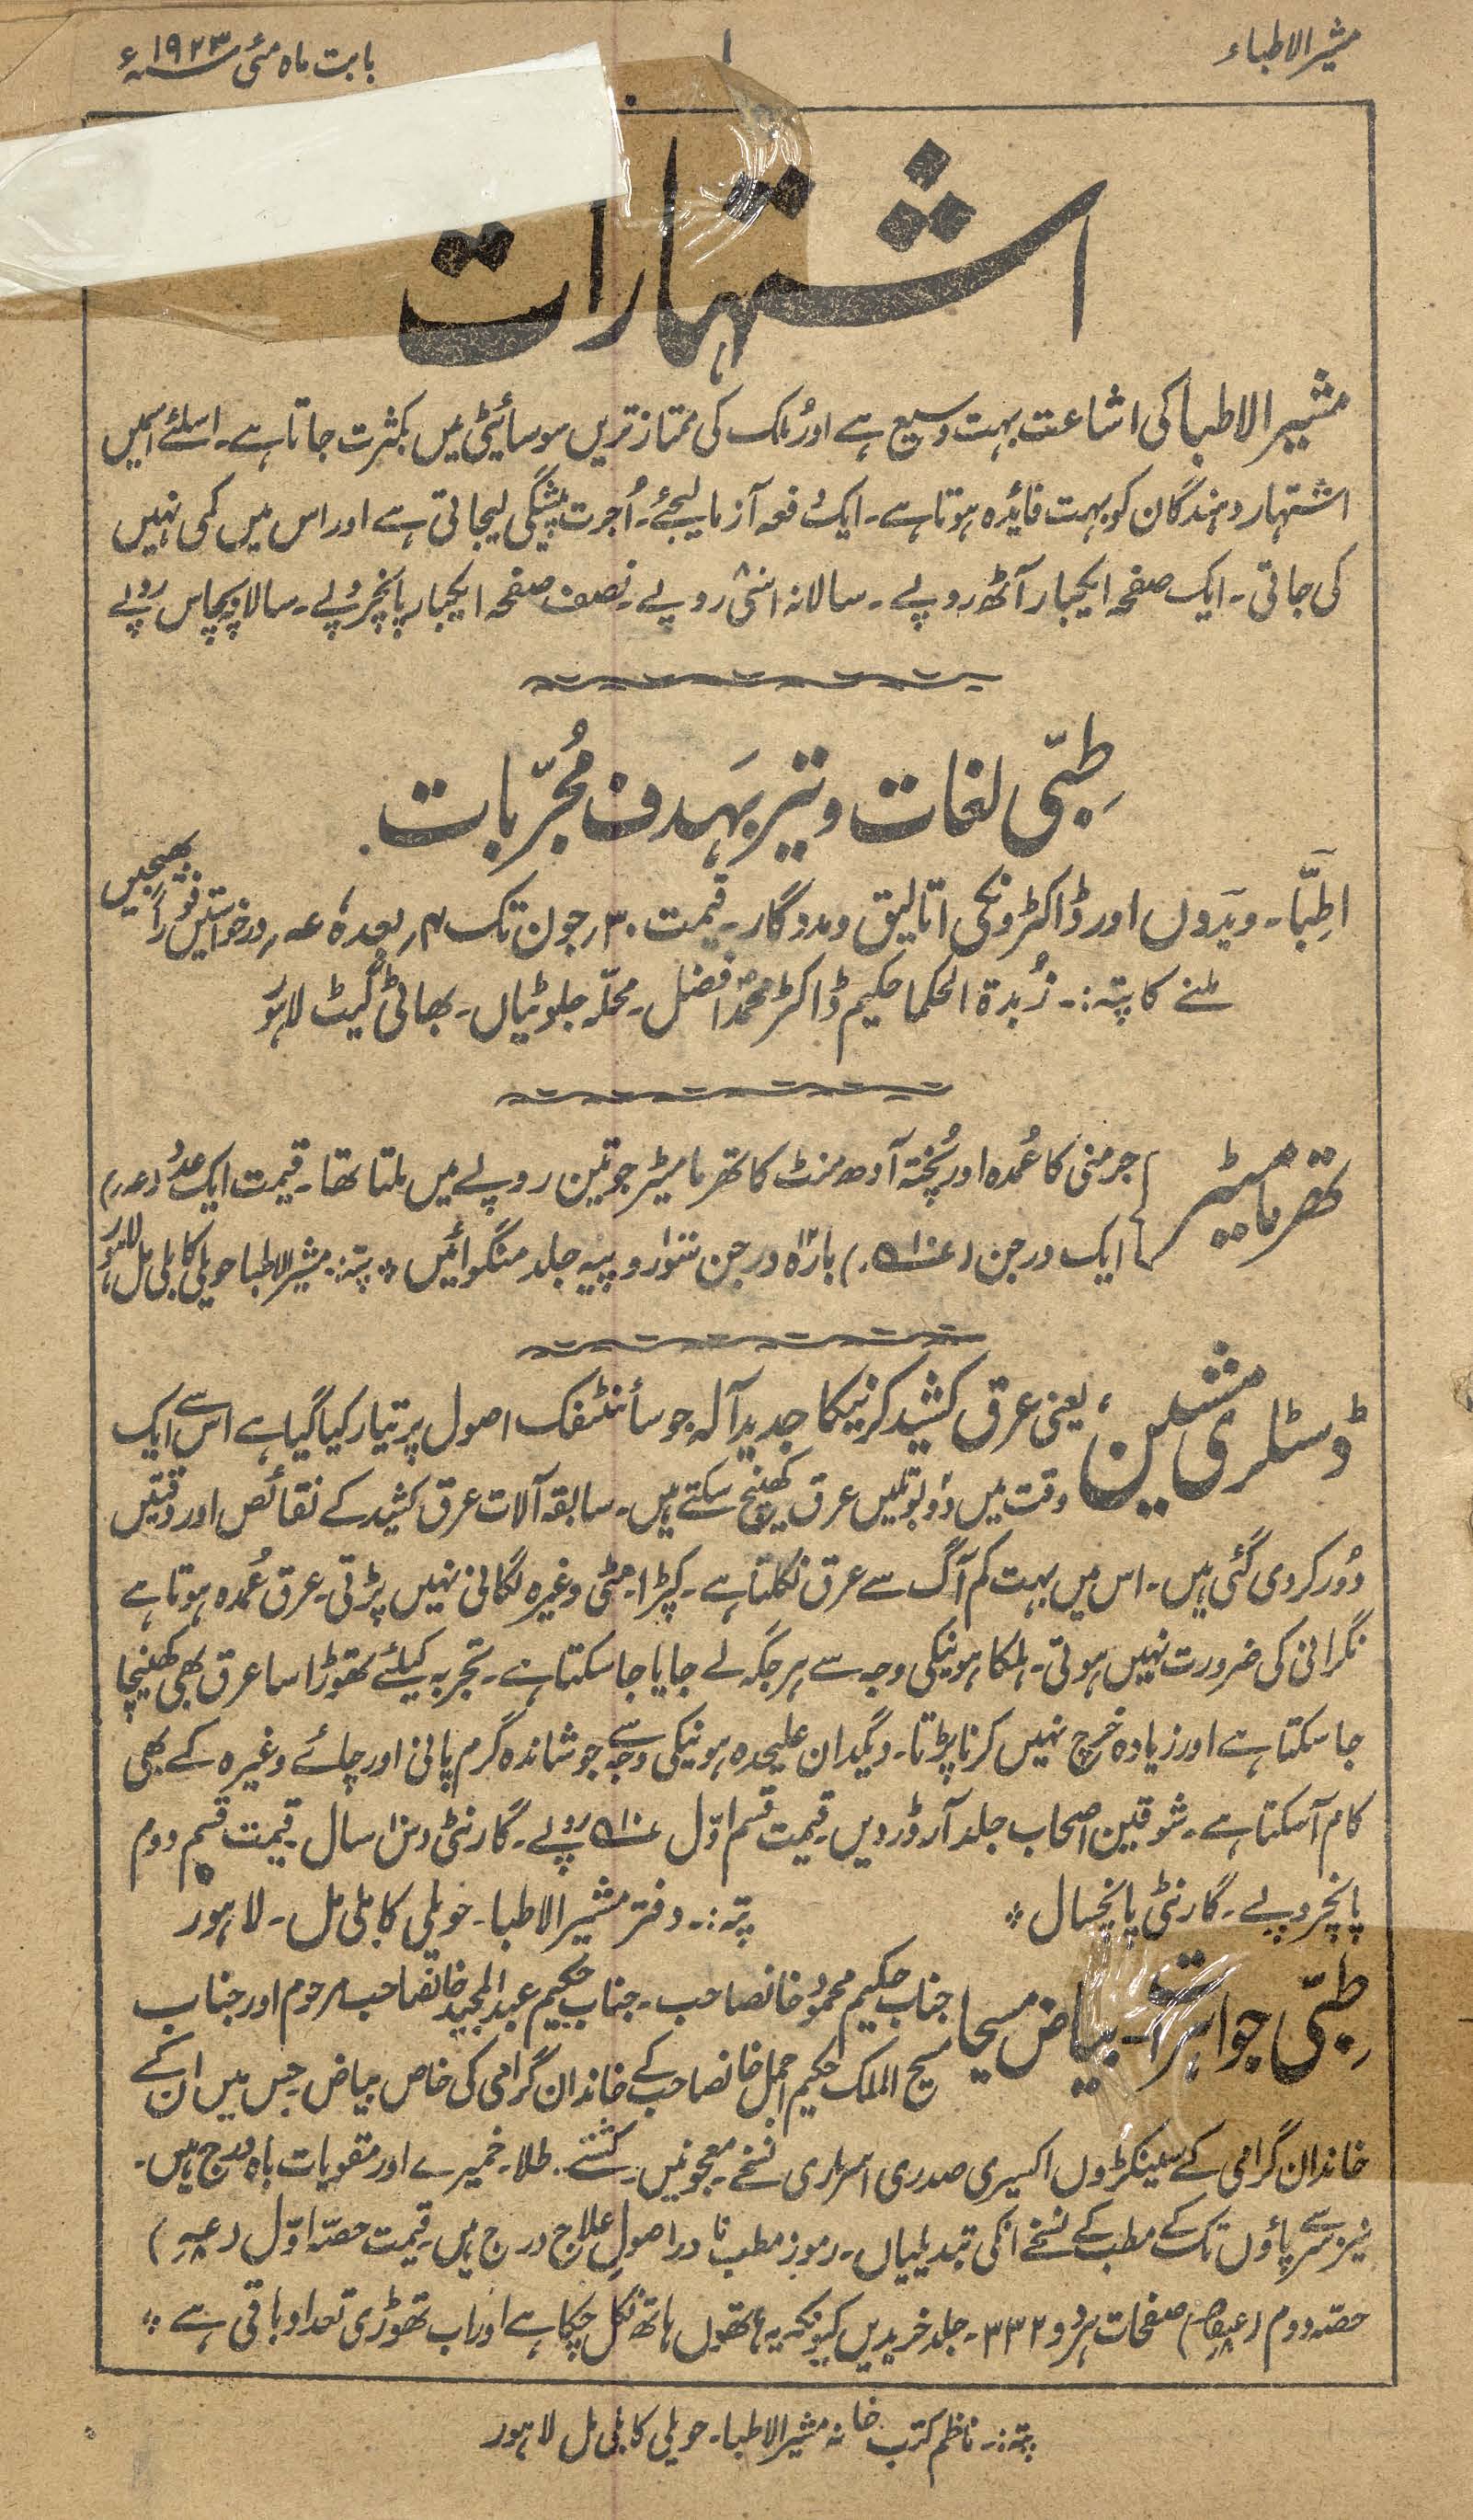 مشیر الاطباء
۱
بابت ماہ مئی ۱۹۲۳ء
اشتہارات
مشیر الاطبا کی اشاعت بہت وسیع ہے اور ملک کی ممتاز ترین سوسائیٹی میں بکثرت جاتا ہے۔ اسلئے اسمیں
اشتہار دہندگان کو بہت فائدہ ہوتا ہے۔ ایک دفعہ آزما لیجئے۔ اُجرت پیشگی لیجاتی ہے اور اس میں کمی نہیں
کی جاتی۔ ایک صفحہ ایکبار آٹھ روپے۔ سالانہ اسّی روپے۔ نصف صفحہ ایکبار پانچروپے۔ سالانہ پچاس روپے
طِبّی لغات و تیر بَہدف مُجرّبات
اطِبّا۔ ویدوں اور ڈاکٹرونکی اتالیق و مددگار۔ قیمت ۳۰؍ جون تک ۴؍ بعدہٗ عہ؍ درخواستیں فوراً بھیجیں
ملنے کا پتہ:۔ زُبدۃ الحکما حکیم ڈاکٹر محمد افضل۔ محلّہ جلوٹیاں۔ بھاٹی گیٹ لاہور
تھرمامیٹر
جرمنی کا عُمدہ اور پُختہ آدھ منٹ کا تھرمامیٹر جو تین روپے میں ملتا تھا۔ قیمت ایک عدد
ایک درجن بارہ درجن سَو روپیہ جلد منگوائیں ٭ پتہ:۔ مشیر الاطبا حویلی کابلی مل لاہور
ڈسٹلری مشین، یعنی عرق کشید کرنیکا جدید آلہ جو سائنٹفک اصول پر تیار کیا گیا ہے اس سے ایک
وقت میں دو بوتلیں عرق کھینچ سکتے ہیں۔ سابقہ آلات عرق کشید کے نقائص اور دقتیں
دُور کر دی گئی ہیں۔ اس میں بہت کم آگ سے عرق نکلتا ہے۔ کپڑا۔ مٹی وغیرہ لگانی نہیں پڑتی۔ عرق عُمدہ ہوتا ہے
نگرانی کی ضرورت نہیں ہوتی۔ ہلکا ہونیکی وجہ سے ہر جگہ لے جایا جا سکتا ہے۔ تجربہ کیلئے تھوڑا سا عرق بھی کھینچا
جا سکتا ہے اور زیادہ خرچ نہیں کرنا پڑتا۔ دیگدان علیحدہ ہونیکی وجہ سے جوشاندہ گرم پانی اور چائے وغیرہ کے بھی
کام آ سکتا ہے۔ شوقین اصحاب جلد آرڈر دیں۔ قیمت قسم اوّل روپے۔ گارنٹی دس سال۔ قیمت قسم دوم
پانچروپے۔ گارنٹی پانچسال ٭
پتہ:۔ دفتر مشیر الاطبا۔ حویلی کابلی مل۔ لاہور
طِبّی جواہرات۔ بیاض مسیحا
جناب حکیم محمود خانصاحب۔ جناب حکیم عبد المجید خانصاحب مرحوم اور جناب
مسیح الملک حکیم اجمل خانصاحب کے خاندان گرامی کی خاص بیاض جس میں ان کے
خاندان گرامی کے سینکڑوں اکسیری صدری اسراری نسخے۔ معجونیں۔ کشتے۔ طلا۔ خمیرے اور مقویات باہ درج ہیں۔
نیز سَر سے پاؤں تک کے مطب کے نسخے انکی تبدیلیاں۔ رموز مطب نادر اصولِ علاج درج ہیں۔ قیمت حصّہ اوّل
حصّہ دوم صفحات ہر دو ۳۳۲۔ جلد خریدیں کیونکہ یہ ہاتھوں ہاتھ نکل چکا ہے اور اب تھوڑی تعداد باقی ہے ٭
پتہ:۔ ناظم کتب خانہ مشیر الاطبا۔ حویلی کابلی مل لاہور